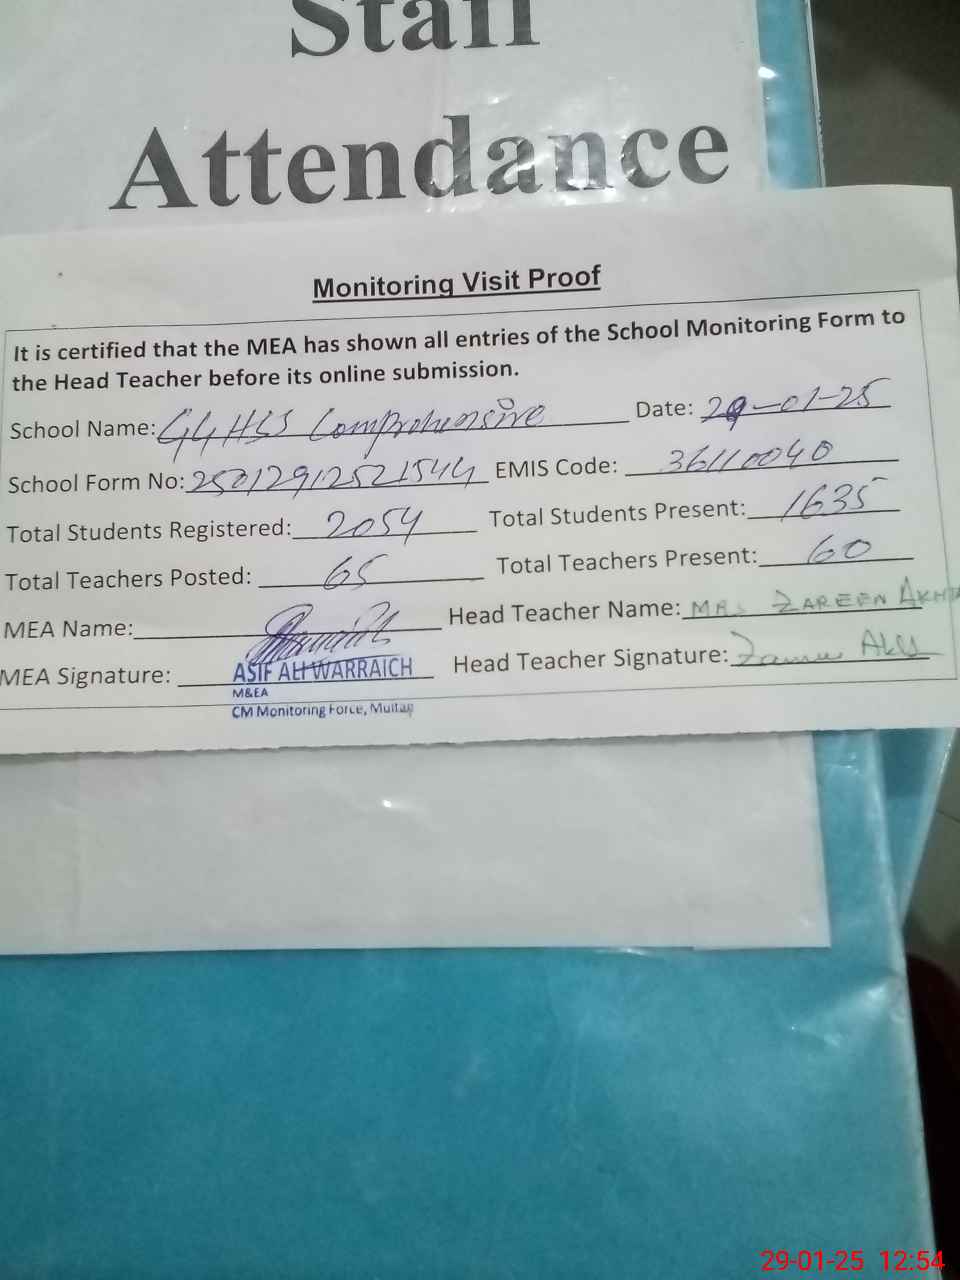 Staff
Attendance
Monitoring Visit Proof
It is certified that the MEA has shown all entries of the School Monitoring Form to
the Head Teacher before its online submission.
School Name: GGHSS Comprehensive Date: 29-01-25
School Form No: 25012912521544 EMIS Code: 36110040
Total Students Registered: 2054 Total Students Present: 1635
Total Teachers Posted: 65 Total Teachers Present: 60
MEA Name: Head Teacher Name: MRS ZAREEN AKHTA
MEA Signature: ASIF ALI WARRAICH Head Teacher Signature:
M&EA
CM Monitoring Force, Multan
29-01-25 12:54